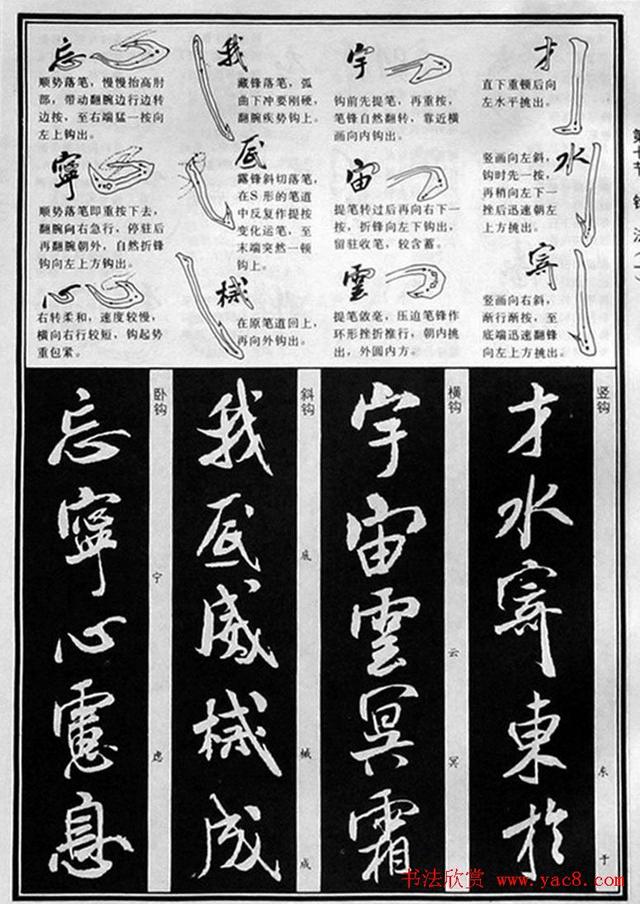 才
直下重顿后向
左水平挑出。
水
竖画向左斜,
钩时先一按,
再稍向左下一
挫后迅速朝左
上方挑出。
寄
竖画向右斜,
渐行渐按,至
底端迅速翻锋
向左上方挑出。
宇
钩前先提笔,再重按,
笔锋自然翻转,靠近横
画向内钩出。
宙
提笔转过后再向右下一
按,折锋向左下钩出,
留驻收笔,较含蓄。
雲
提笔敛毫,压迫笔锋作
环形挫折推行,朝内挑
出,外圆内方。
我
藏锋落笔,弧
曲下冲要刚硬,
翻腕疾势钩上。
底
露锋斜切落笔,
在S形的笔道
中反复作提按
变化运笔,至
末端突然一顿
钩上。
械
在原笔道回上,
再向外钩出。
忘
顺势落笔,慢慢抬高肘
部,带动翻腕边行边转
边按,至右端猛一按向
左上钩出。
寧
顺势落笔即重按下去,
翻腕向右急行,停驻后
再翻腕朝外,自然折锋
钩向左上方钩出。
心
右转柔和,速度较慢,
横向右行较短,钩起势
重包紧。
竖钩
才水寄東於
东
于
横钩
宇宙雲冥霜
云
冥
斜钩
我底威械成
底
械
成
卧钩
忘寧心慮息
宁
虑
书法欣赏 www.yac8.com